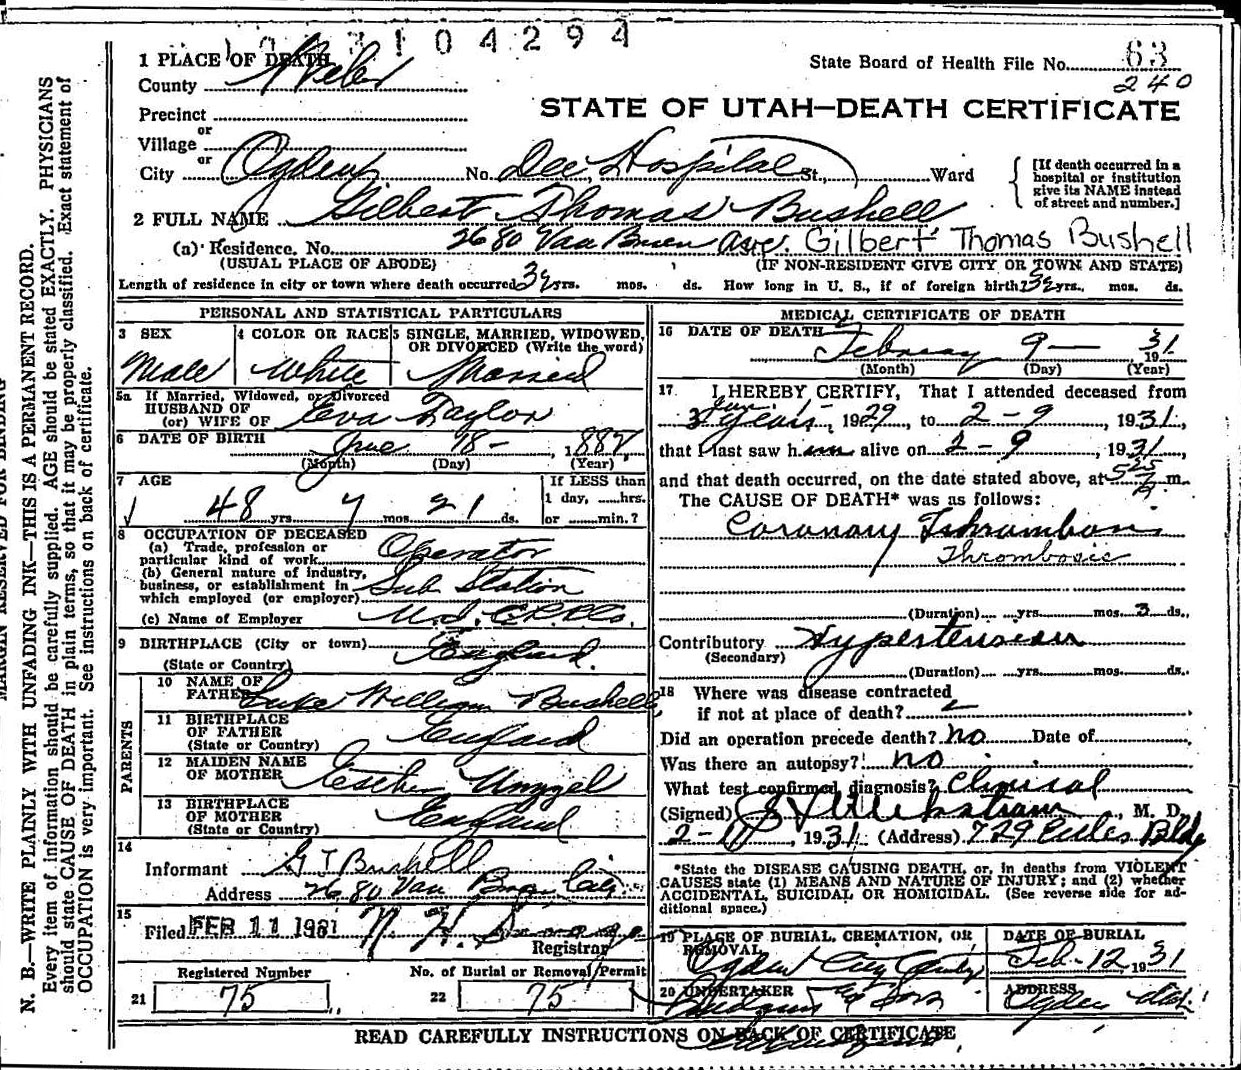 3104294
1 PLACE OF DEATH
County Weber
State Board of Health File No. 63
240
Precinct
or
Village
or
STATE OF UTAH—DEATH CERTIFICATE
City Ogden No. Dee Hospital St., Ward
[If death occurred in a
hospital or institution
give its NAME instead
of street and number.]
2 FULL NAME Gilbert Thomas Bushell
(a) Residence. No. 2680 Van Buren Ave. Gilbert Thomas Bushell
(USUAL PLACE OF ABODE) (IF NON-RESIDENT GIVE CITY OR TOWN AND STATE)
Length of residence in city or town where death occurred 39 yrs. mos. ds. How long in U. S., if of foreign birth? 39 yrs. mos. ds.
PERSONAL AND STATISTICAL PARTICULARS
3 SEX
Male
4 COLOR OR RACE
White
5 SINGLE, MARRIED, WIDOWED,
OR DIVORCED (Write the word)
Married
5a If Married, Widowed, or Divorced
HUSBAND OF
(or) WIFE OF Eva Taylor
6 DATE OF BIRTH
June 18- , 1882
(Month) (Day) (Year)
7 AGE
48 yrs 7 mos 21 ds.
If LESS than
1 day, ......hrs.
or ......min.?
8 OCCUPATION OF DECEASED
(a) Trade, profession or
particular kind of work Operator
(b) General nature of industry,
business, or establishment in
which employed (or employer) Sub Station
(c) Name of Employer
9 BIRTHPLACE (City or town)
(State or Country) England.
PARENTS
10 NAME OF
FATHER Luke William Bushell
11 BIRTHPLACE
OF FATHER
(State or Country) England
12 MAIDEN NAME
OF MOTHER Esther
13 BIRTHPLACE
OF MOTHER
(State or Country) England
14
Informant G T Bushell
Address 2680 Van Buren City
15
Filed FEB 11 1931
Registrar
Registered Number
21 75
No. of Burial or Removal Permit
22 75
MEDICAL CERTIFICATE OF DEATH
16 DATE OF DEATH
February 9— 1931
(Month) (Day) (Year)
17 I HEREBY CERTIFY, That I attended deceased from
Jan 1-
3 years, 1929 to 2-9, 1931,
that I last saw him alive on 2-9, 1931,
and that death occurred, on the date stated above, at m.
The CAUSE OF DEATH* was as follows:
Coronary
Thrombosis
(Duration) yrs. mos. 3 ds.
Contributory Hypertension
(Secondary)
(Duration) yrs. mos. ds.
18 Where was disease contracted
if not at place of death?
Did an operation precede death? no Date of
Was there an autopsy? no
What test confirmed diagnosis? Clinical
(Signed) , M. D.
2-11, 1931 (Address) 729 Eccles Bldg
*State the DISEASE CAUSING DEATH, or, in deaths from VIOLENT
CAUSES state (1) MEANS AND NATURE OF INJURY; and (2) whether
ACCIDENTAL, SUICIDAL OR HOMICIDAL. (See reverse side for ad-
ditional space.)
19 PLACE OF BURIAL, CREMATION, OR
REMOVAL
Ogden City
DATE OF BURIAL
Feb-12 1931
20 UNDERTAKER
& Sons
ADDRESS
Ogden
READ CAREFULLY INSTRUCTIONS ON BACK OF CERTIFICATE
MARGIN RESERVED FOR BINDING
N. B.—WRITE PLAINLY WITH UNFADING INK—THIS IS A PERMANENT RECORD.
Every item of information should be carefully supplied. AGE should be stated EXACTLY. PHYSICIANS
should state CAUSE OF DEATH in plain terms, so that it may be properly classified. Exact statement of
OCCUPATION is very important. See instructions on back of certificate.